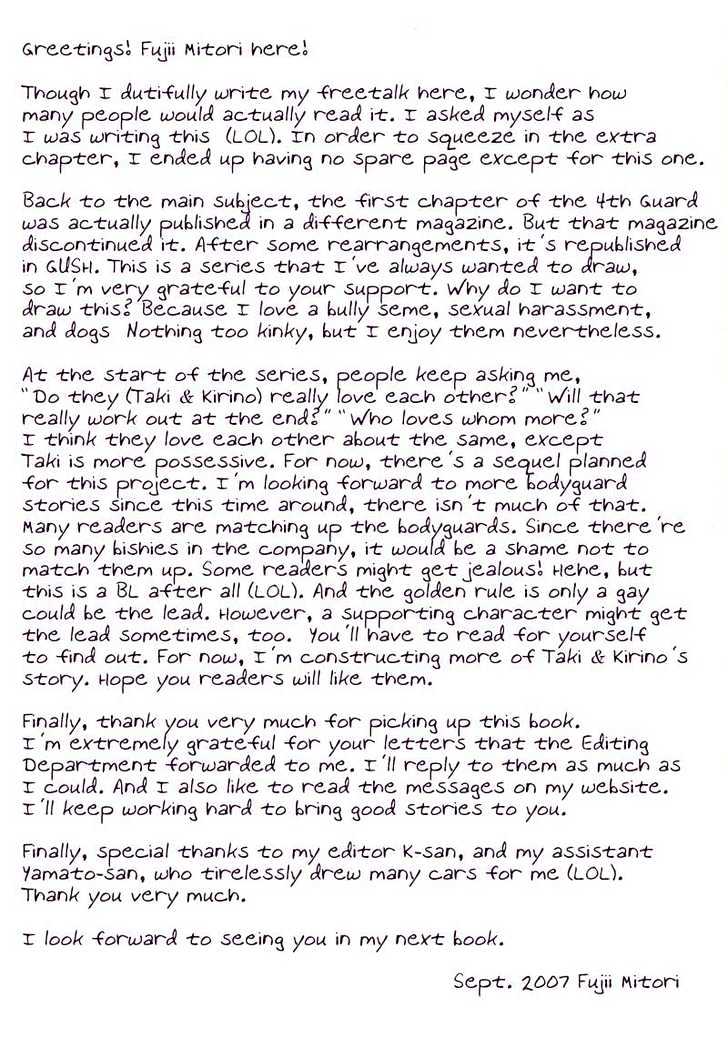 Greetings! Fujii Mitori here!
Though I dutifully write my freetalk here, I wonder how
many people would actually read it. I asked myself as
I was writing this (LOL). In order to squeeze in the extra
chapter, I ended up having no spare page except for this one.
Back to the main subject, the first chapter of the 4th Guard
was actually published in a different magazine. But that magazine
discontinued it. After some rearrangements, it's republished
in GUSH. This is a series that I've always wanted to draw,
so I'm very grateful to your support. Why do I want to
draw this? Because I love a bully seme, sexual harassment,
and dogs Nothing too kinky, but I enjoy them nevertheless.
At the start of the series, people keep asking me,
"Do they (Taki & Kirino) really love each other?" "Will that
really work out at the end?" "Who loves whom more?"
I think they love each other about the same, except
Taki is more possessive. For now, there's a sequel planned
for this project. I'm looking forward to more bodyguard
stories since this time around, there isn't much of that.
Many readers are matching up the bodyguards. Since there're
so many bishies in the company, it would be a shame not to
match them up. Some readers might get jealous! Hehe, but
this is a BL after all (LOL). And the golden rule is only a gay
could be the lead. However, a supporting character might get
the lead sometimes, too. You'll have to read for yourself
to find out. For now, I'm constructing more of Taki & Kirino's
story. Hope you readers will like them.
Finally, thank you very much for picking up this book.
I'm extremely grateful for your letters that the Editing
Department forwarded to me. I'll reply to them as much as
I could. And I also like to read the messages on my website.
I'll keep working hard to bring good stories to you.
Finally, special thanks to my editor K-san, and my assistant
Yamato-san, who tirelessly drew many cars for me (LOL).
Thank you very much.
I look forward to seeing you in my next book.
Sept. 2007 Fujii Mitori